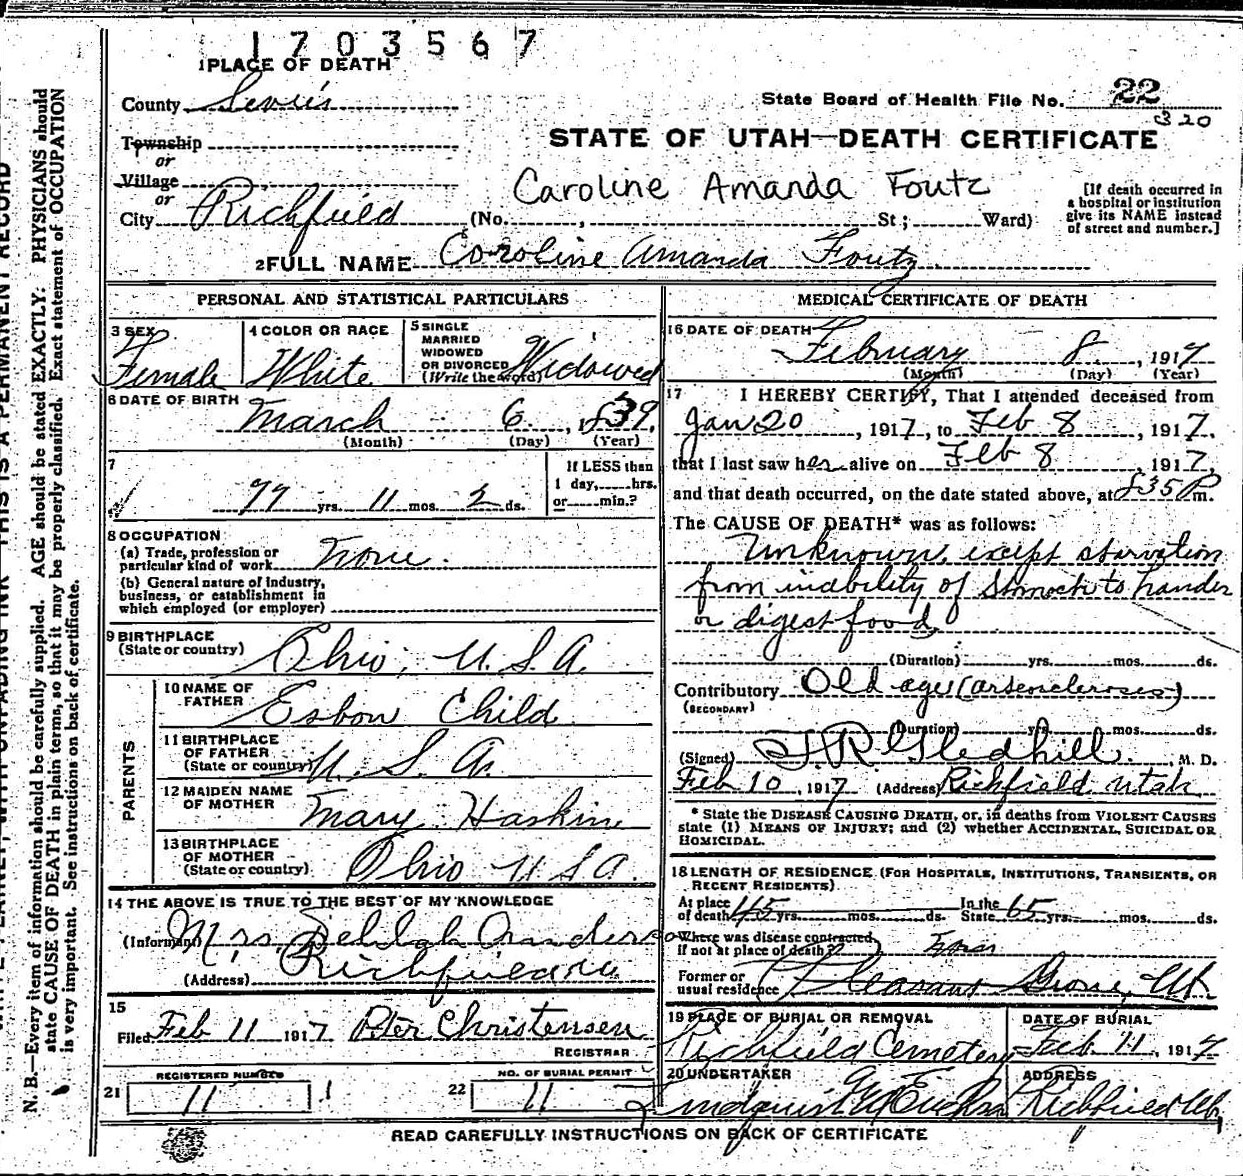 1703567
1 PLACE OF DEATH
County Sevier
State Board of Health File No. 22
320
Township
or
Village
or
City Richfield
STATE OF UTAH—DEATH CERTIFICATE
Caroline Amanda Foutz
(No. , St; Ward)
[If death occurred in
a hospital or institution
give its NAME instead
of street and number.]
2 FULL NAME Caroline Amanda Foutz
PERSONAL AND STATISTICAL PARTICULARS
3 SEX
Female
4 COLOR OR RACE
White
5 SINGLE
MARRIED
WIDOWED
OR DIVORCED
(Write the word)
Widowed
6 DATE OF BIRTH
March 6, 1839.
(Month) (Day) (Year)
7
77 yrs. 11 mos. 2 ds.
If LESS than
1 day, hrs.
or min.?
8 OCCUPATION
(a) Trade, profession or
particular kind of work None.
(b) General nature of industry,
business, or establishment in
which employed (or employer)
9 BIRTHPLACE
(State or country) Ohio, U.S.A.
PARENTS
10 NAME OF
FATHER Esbon Child
11 BIRTHPLACE
OF FATHER
(State or country) U.S.A.
12 MAIDEN NAME
OF MOTHER Mary Haskin
13 BIRTHPLACE
OF MOTHER
(State or country) Ohio U S A.
14 THE ABOVE IS TRUE TO THE BEST OF MY KNOWLEDGE
(Informant) Mrs Delilah
(Address) Richfield
15
Filed Feb 11 1917 Peter Christensen
REGISTRAR
21 REGISTERED NUMBER
11
22 NO. OF BURIAL PERMIT
11
MEDICAL CERTIFICATE OF DEATH
16 DATE OF DEATH
February 8, 1917
(Month) (Day) (Year)
17 I HEREBY CERTIFY, That I attended deceased from
Jan 20, 1917, to Feb 8, 1917.
that I last saw her alive on Feb 8 1917,
and that death occurred, on the date stated above, at 835 P m.
The CAUSE OF DEATH* was as follows:
Unknown, except starvation
from inability of Stomach to
or digest food
(Duration) yrs. mos. ds.
Contributory Old age (arsenclerosis)
(SECONDARY)
(Duration) yrs. mos. ds.
(Signed) Gledhill, M. D.
Feb 10, 1917 (Address) Richfield Utah
* State the DISEASE CAUSING DEATH, or, in deaths from VIOLENT CAUSES
state (1) MEANS OF INJURY; and (2) whether ACCIDENTAL, SUICIDAL OR
HOMICIDAL.
18 LENGTH OF RESIDENCE (FOR HOSPITALS, INSTITUTIONS, TRANSIENTS, OR
RECENT RESIDENTS)
At place In the
of death 45 yrs. mos. ds. State 65 yrs. mos. ds.
Where was disease contracted
if not at place of death?
Former or
usual residence Pleasant Grove, Ut.
19 PLACE OF BURIAL OR REMOVAL
Richfield Cemetery
DATE OF BURIAL
Feb. 11, 1917
20 UNDERTAKER
Lindquist
ADDRESS
Richfield Ut,
READ CAREFULLY INSTRUCTIONS ON BACK OF CERTIFICATE
N. B.—Every item of information should be carefully supplied. AGE should be stated EXACTLY. PHYSICIANS should
state CAUSE OF DEATH in plain terms, so that it may be properly classified. Exact statement of OCCUPATION
is very important. See instructions on back of certificate.